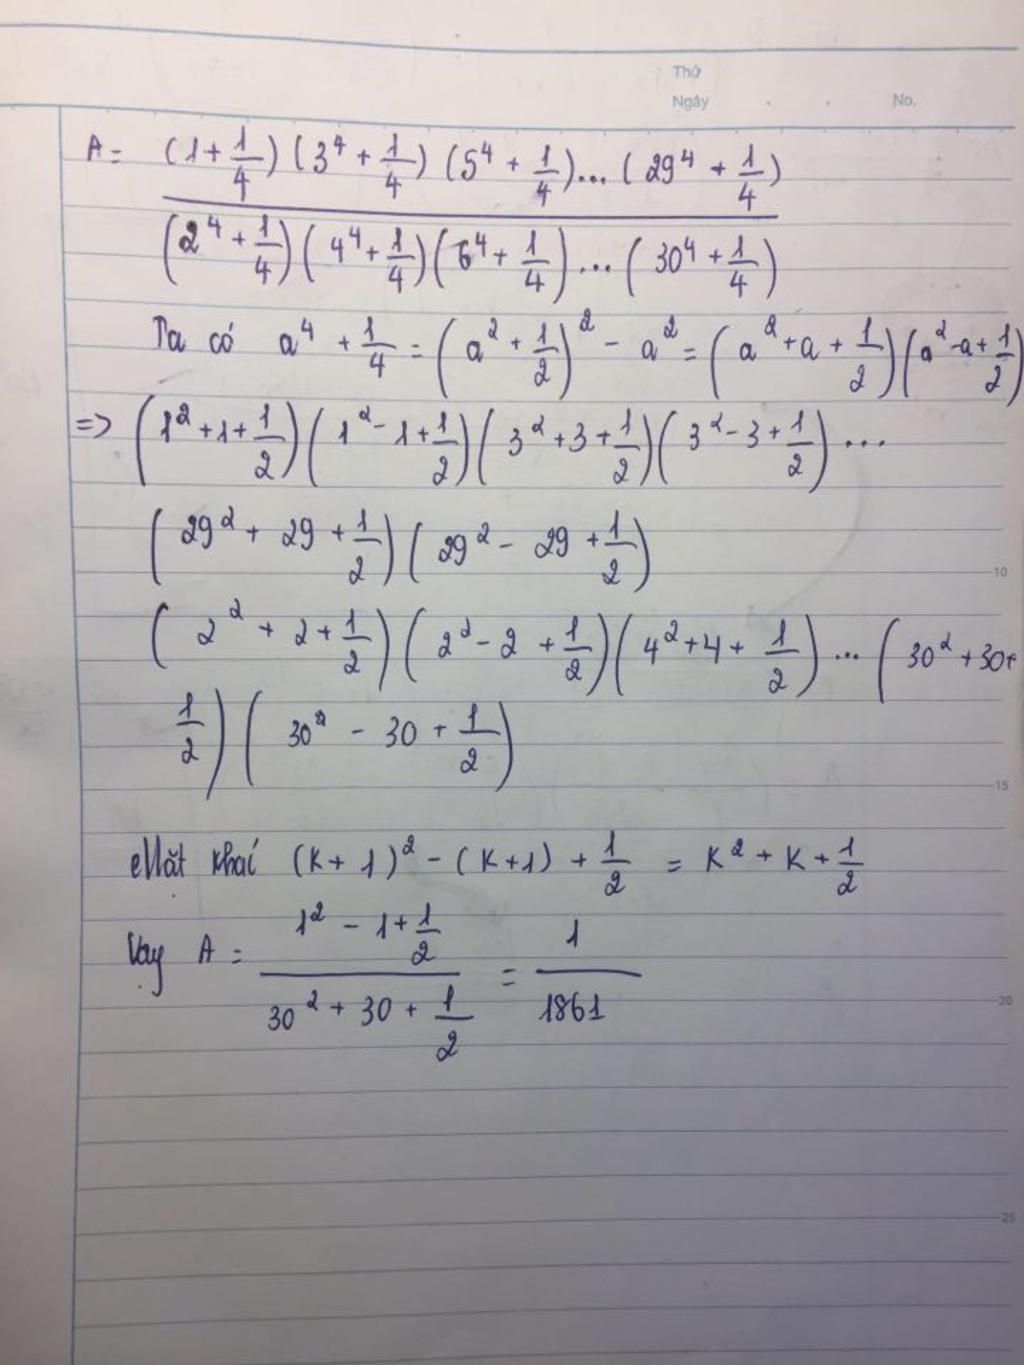 Thứ
Ngày . . No.
A = (1 + 1/4)(3⁴ + 1/4)(5⁴ + 1/4)...(29⁴ + 1/4)
(2⁴ + 1/4)(4⁴ + 1/4)(6⁴ + 1/4)...(30⁴ + 1/4)
Ta có a⁴ + 1/4 = (a² + 1/2)² - a² = (a² + a + 1/2)(a² - a + 1/2)
=> (1² + 1 + 1/2)(1² - 1 + 1/2)(3² + 3 + 1/2)(3² - 3 + 1/2)...
(29² + 29 + 1/2)(29² - 29 + 1/2)
10
(2² + 2 + 1/2)(2² - 2 + 1/2)(4² + 4 + 1/2)...(30² + 30 +
1/2)(30² - 30 + 1/2)
15
Mặt khaí (K + 1)² - (K + 1) + 1/2 = K² + K + 1/2
Vay A = (1² - 1 + 1/2)/(30² + 30 + 1/2) = 1/1861
20
25